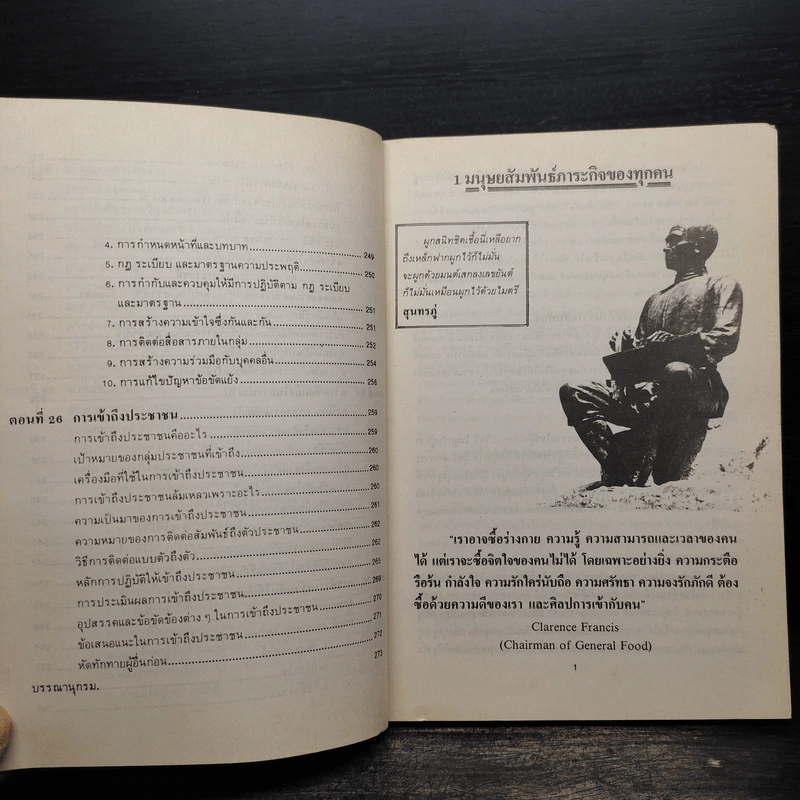 4. การกำหนดหน้าที่และบทบาท 249
5. กฎ ระเบียบ และมาตรฐานความประพฤติ 250
6. การกำกับและควบคุมให้มีการปฏิบัติตาม กฎ ระเบียบ
และมาตรฐาน 251
7. การสร้างความเข้าใจซึ่งกันและกัน 251
8. การติดต่อสื่อสารภายในกลุ่ม 252
9. การสร้างความร่วมมือกับบุคคลอื่น 254
10. การแก้ไขปัญหาข้อขัดแย้ง 256
ตอนที่ 26 การเข้าถึงประชาชน 259
การเข้าถึงประชาชนคืออะไร 259
เป้าหมายของกลุ่มประชาชนที่เข้าถึง 260
เครื่องมือที่ใช้ในการเข้าถึงประชาชน 260
การเข้าถึงประชาชนล้มเหลวเพราะอะไร 260
ความเป็นมาของการเข้าถึงประชาชน 261
ความหมายของการติดต่อสัมพันธ์ถึงตัวประชาชน 262
วิธีการติดต่อแบบตัวถึงตัว 262
หลักการปฏิบัติให้เข้าถึงประชาชน 265
การประเมินผลการเข้าถึงประชาชน 269
อุปสรรคและข้อขัดข้องต่าง ๆ ในการเข้าถึงประชาชน 270
ข้อเสนอแนะในการเข้าถึงประชาชน 271
หัดทักทายผู้อื่นก่อน 272
บรรณานุกรม. 273
1 มนุษยสัมพันธ์ภาระกิจของทุกคน
ผูกสนิทชิดเชื้อนี่เหลือยาก
ถึงเหล็กฟากผูกไว้ก็ไม่มั่น
จะผูกด้วยมนต์เสกลงเลขยันต์
ก็ไม่มั่นเหมือนผูกไว้ด้วยไมตรี
สุนทรภู่
"เราอาจซื้อร่างกาย ความรู้ ความสามารถและเวลาของคน
ได้ แต่เราจะซื้อจิตใจของคนไม่ได้ โดยเฉพาะอย่างยิ่ง ความกระตือ
รือร้น กำลังใจ ความรักใคร่นับถือ ความศรัทธา ความจงรักภักดี ต้อง
ซื้อด้วยความดีของเรา และศิลปการเข้ากับคน"
Clarence Francis
(Chairman of General Food)
1